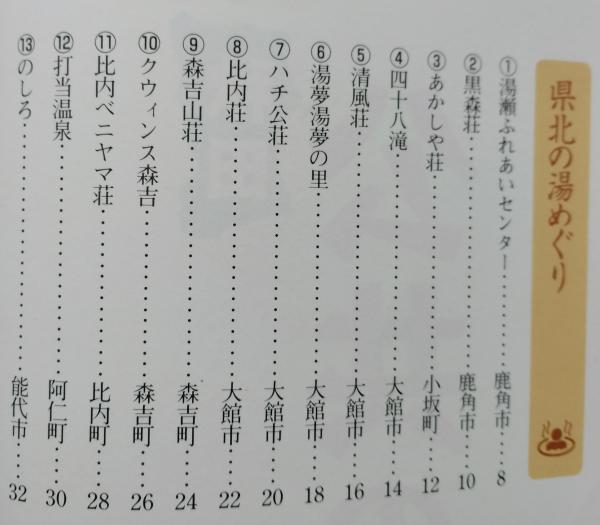 県北の湯めぐり
①湯瀬ふれあいセンター‥‥‥‥‥鹿角市‥‥8
②黒森荘‥‥‥‥‥‥‥‥‥鹿角市‥‥10
③あかしや荘‥‥‥‥‥‥‥‥小坂町‥‥12
④四十八滝‥‥‥‥‥‥‥‥‥大館市‥‥14
⑤清風荘‥‥‥‥‥‥‥‥‥‥大館市‥‥16
⑥湯夢湯夢の里‥‥‥‥‥‥‥大館市‥‥18
⑦ハチ公荘‥‥‥‥‥‥‥‥‥大館市‥‥20
⑧比内荘‥‥‥‥‥‥‥‥‥‥大館市‥‥22
⑨森吉山荘‥‥‥‥‥‥‥‥‥森吉町‥‥24
⑩クウィンス森吉‥‥‥‥‥‥森吉町‥‥26
⑪比内ベニヤマ荘‥‥‥‥‥‥比内町‥‥28
⑫打当温泉‥‥‥‥‥‥‥‥‥阿仁町‥‥30
⑬のしろ‥‥‥‥‥‥‥‥‥‥能代市‥‥32